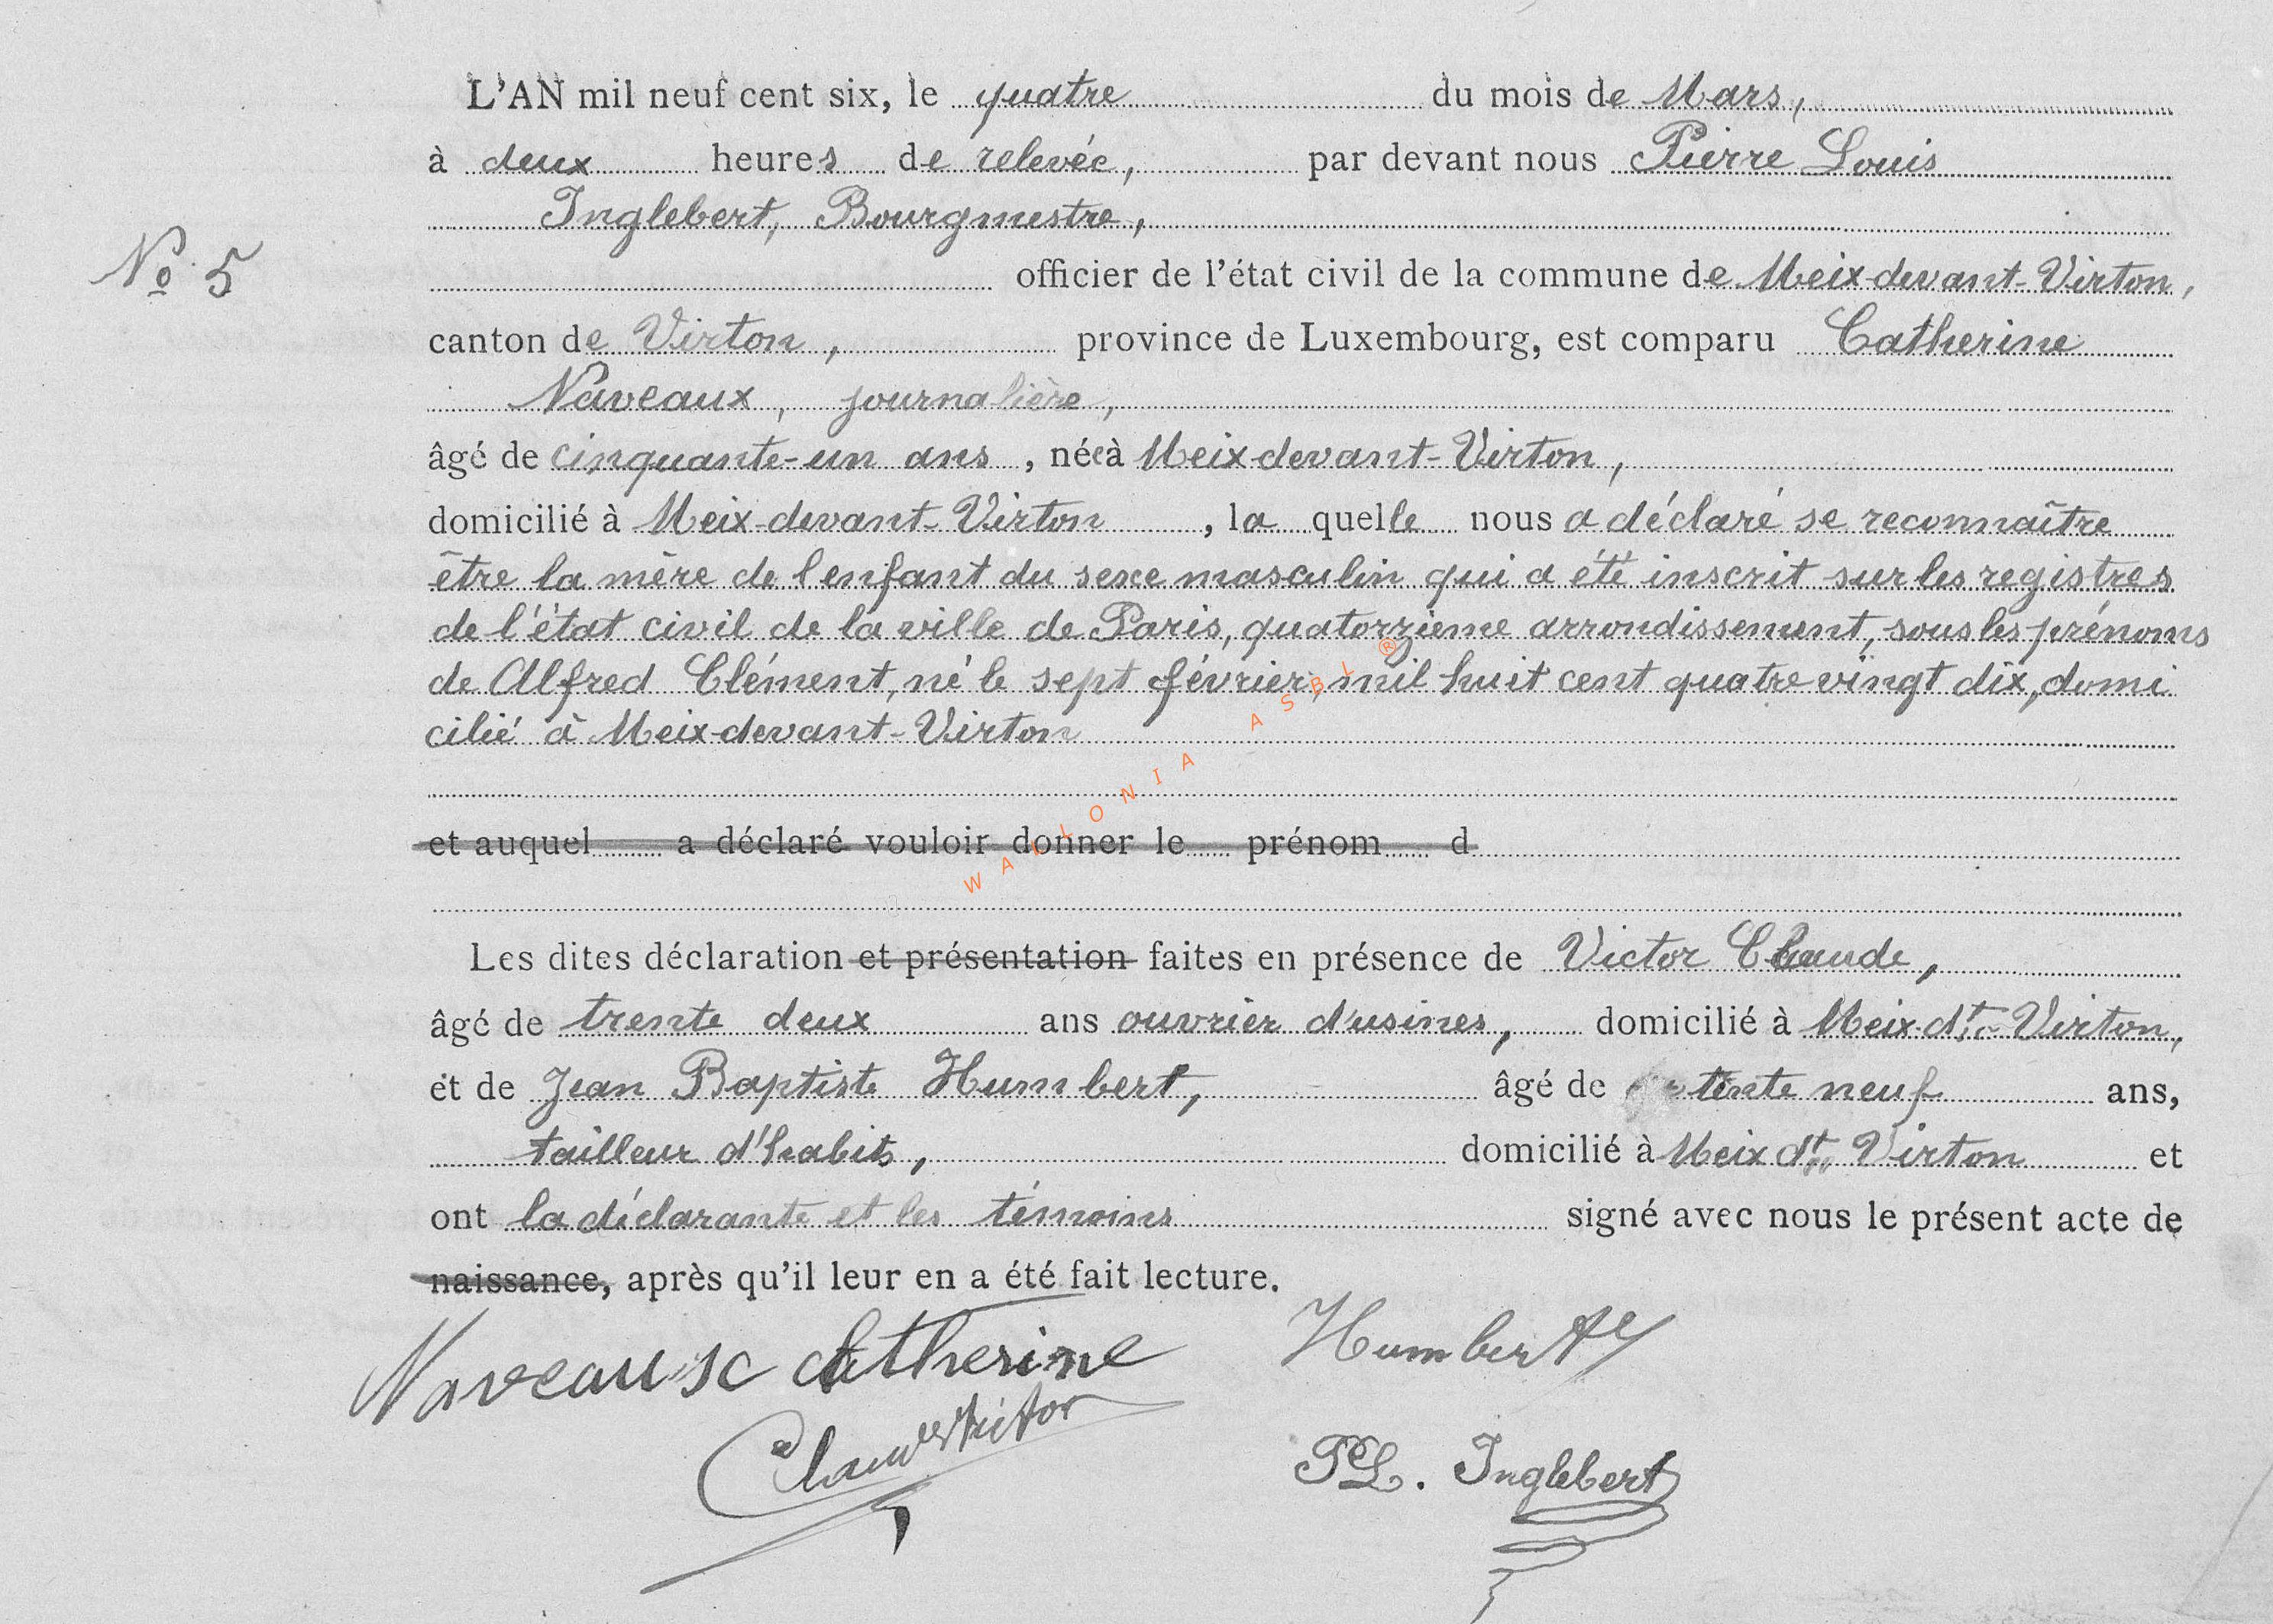 L'AN mil neuf cent six, le quatre du mois de Mars,
à deux heures de relevée, par devant nous Pierre Louis
Inglebert, Bourgmestre,
No 5
officier de l'état civil de la commune de Meix-devant-Virton,
canton de Virton, province de Luxembourg, est comparu Catherine
Naveaux, journalière,
âgé de cinquante-un ans, née à Meix-devant-Virton,
domicilié à Meix-devant-Virton, la quelle nous a déclaré se reconnaître
être la mère de l'enfant du sexe masculin qui a été inscrit sur les registres
de l'état civil de la ville de Paris, quatorzième arrondissement, sous les prénoms
de Alfred Clément, né le sept février mil huit cent quatre vingt dix, domi
cilié à Meix-devant-Virton
et auquel a déclaré vouloir donner le prénom d
WALLONIA ASBL ®
Les dites déclaration et présentation faites en présence de Victor Claude,
âgé de trente deux ans ouvrier d'usines, domicilié à Meix-dt-Virton,
et de Jean Baptiste Humbert, âgé de trente neuf ans,
tailleur d'habits, domicilié à Meix dt Virton et
ont la déclarante et les témoins signé avec nous le présent acte de
naissance, après qu'il leur en a été fait lecture.
Naveaux Catherine Humbert
Claude Victor
PL. Inglebert